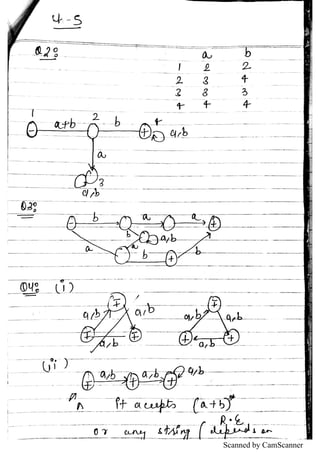 4-5
Q2: a b
1 2 2
2 3 4
3 3 3
4 4 4
1 2 4
- a+b b + a,b
a
3
a,b
Q3:
b a a +
b a a,b
a b + b
Q4: (i)
± ±
a,b a,b a,b a,b
± ± ± ±
a,b a,b
(ii)
± a,b ± a,b ± a,b
it accepts (a+b)*
R.E
or any string (depends on
Scanned by CamScanner